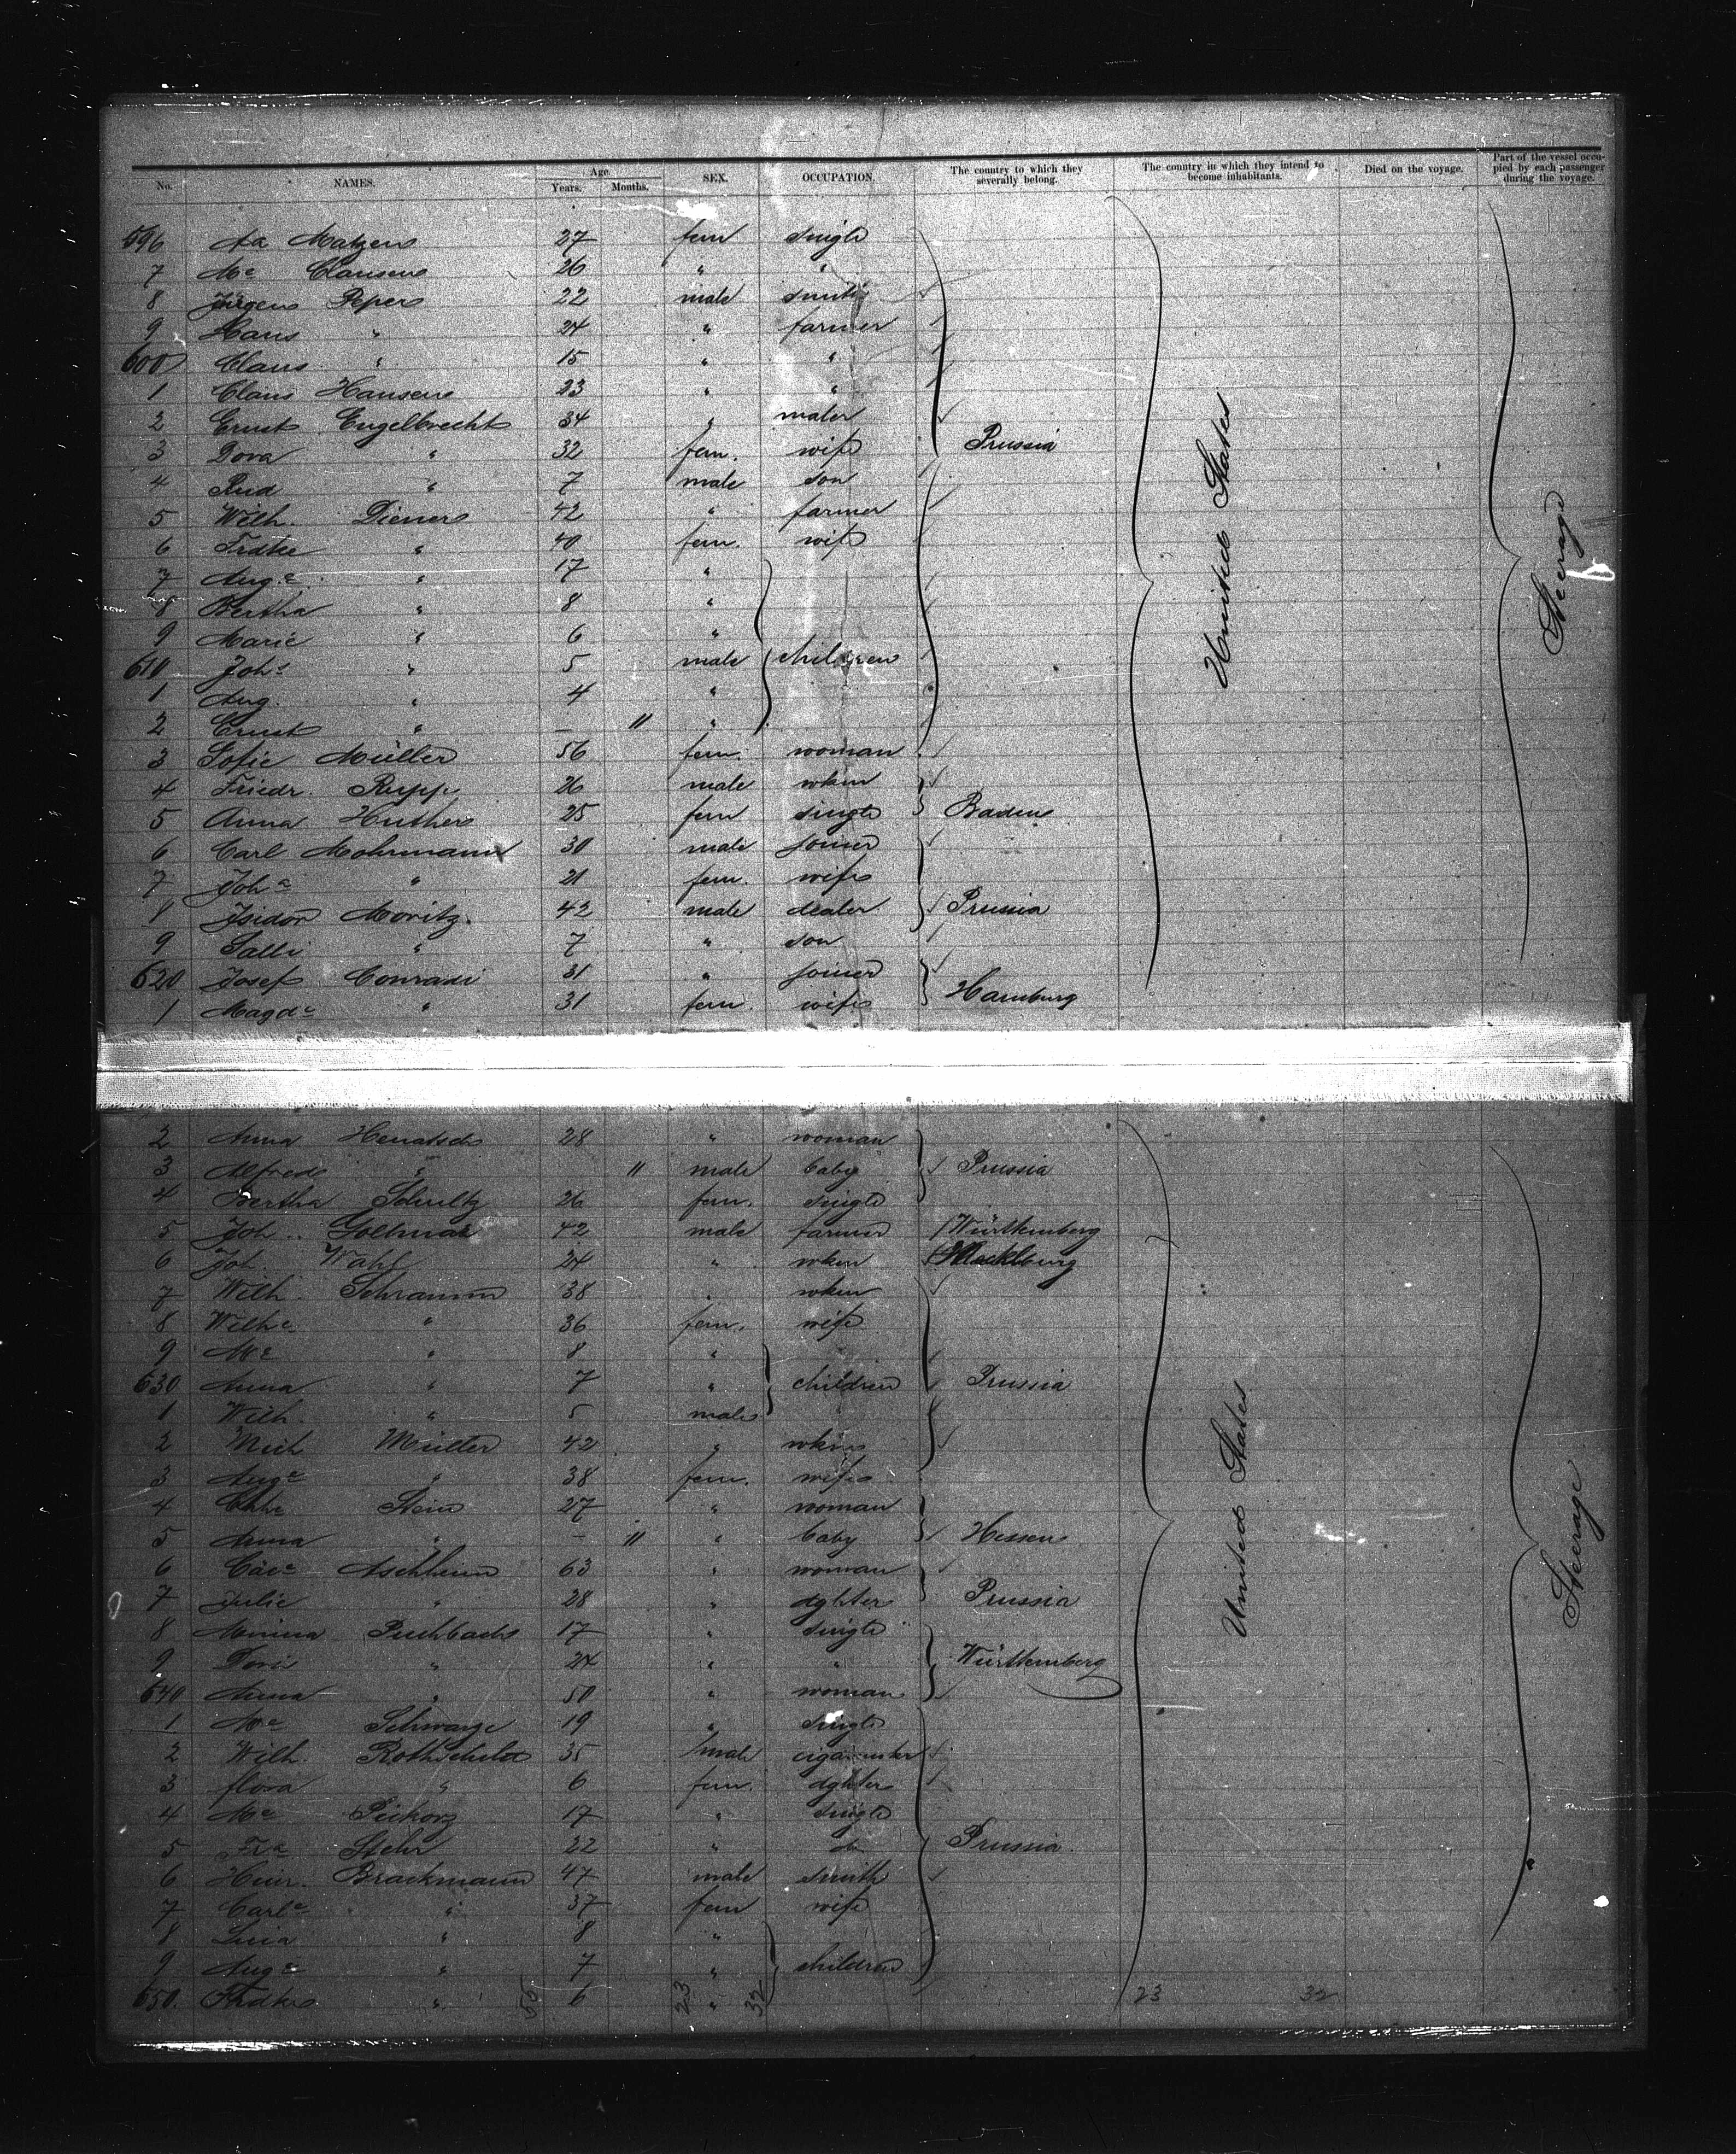 No. NAMES. Age. Years. Months. SEX. OCCUPATION. The country to which they severally belong. The country in which they intend to become inhabitants. Died on the voyage. Part of the vessel occupied by each passenger during the voyage.
596 Aa Matzen 27 fem single
7 Me Clausen 26 " "
8 Jürgen Peper 22 male smith
9 Hans " 24 " farmer
600 Claus " 15 " "
1 Claus Hansen 23 " "
2 Ernst Engelbrecht 34 " maler
3 Dora " 32 fem. wife Prussia
4 Rud " 7 male son
5 Wilh. Diener 42 " farmer
6 Frdke " 40 fem. wife
7 Auge " 17 "
8 Bertha " 8 "
9 Marie " 6 "
610 Johe " 5 male children
1 Aug. " 4 "
2 Ernst " – 11 "
3 Sofie Müller 56 fem. woman
4 Friedr. Rupp 26 male wkm
5 Anna Huther 25 fem single Baden
6 Carl Mohrmann 30 male joiner
7 Johe " 21 fem. wife
8 Isidor Moritz. 42 male dealer Prussia
9 Salli " 7 " son
620 Josef Conradi 31 " joiner
1 Magde " 31 fem. wife Hamburg
United States
Steerage
2 Anna 28 " woman
3 Alfred " 11 male baby Prussia
4 Bertha Schultz 26 fem. single
5 Joh. 42 male farmer Württemberg
6 Joh. Wahl 24 " wkm Mecklburg
7 Wilh. Schramm 38 " wkm
8 Wilhe " 36 fem. wife
9 Me " 8 "
630 Anna " 7 " children Prussia
1 Wilh. " 5 male
2 Mich Müller 42 " wkm
3 Auge " 38 fem. wife
4 Stein 27 " woman
5 Anna " – 11 " baby Hessen
6 Aschheim 63 " woman
7 Julie " 28 " dghter Prussia
8 Minna 17 " single
9 " 24 " " Württemberg
640 Anna " 50 " woman
1 Me Schwarze 19 " single
2 Wilh. Rothschild 35 male
3 flora " 6 fem. dghter
4 Me 17 " single
5 Fra Stehr 22 " do Prussia
6 Heinr. Brackmann 47 male smith
7 Carle " 37 fem wife
8 " 8 "
9 Auge " 7 " children
650. Frdke " 55 6 23 " 32 23 32
United States
Steerage